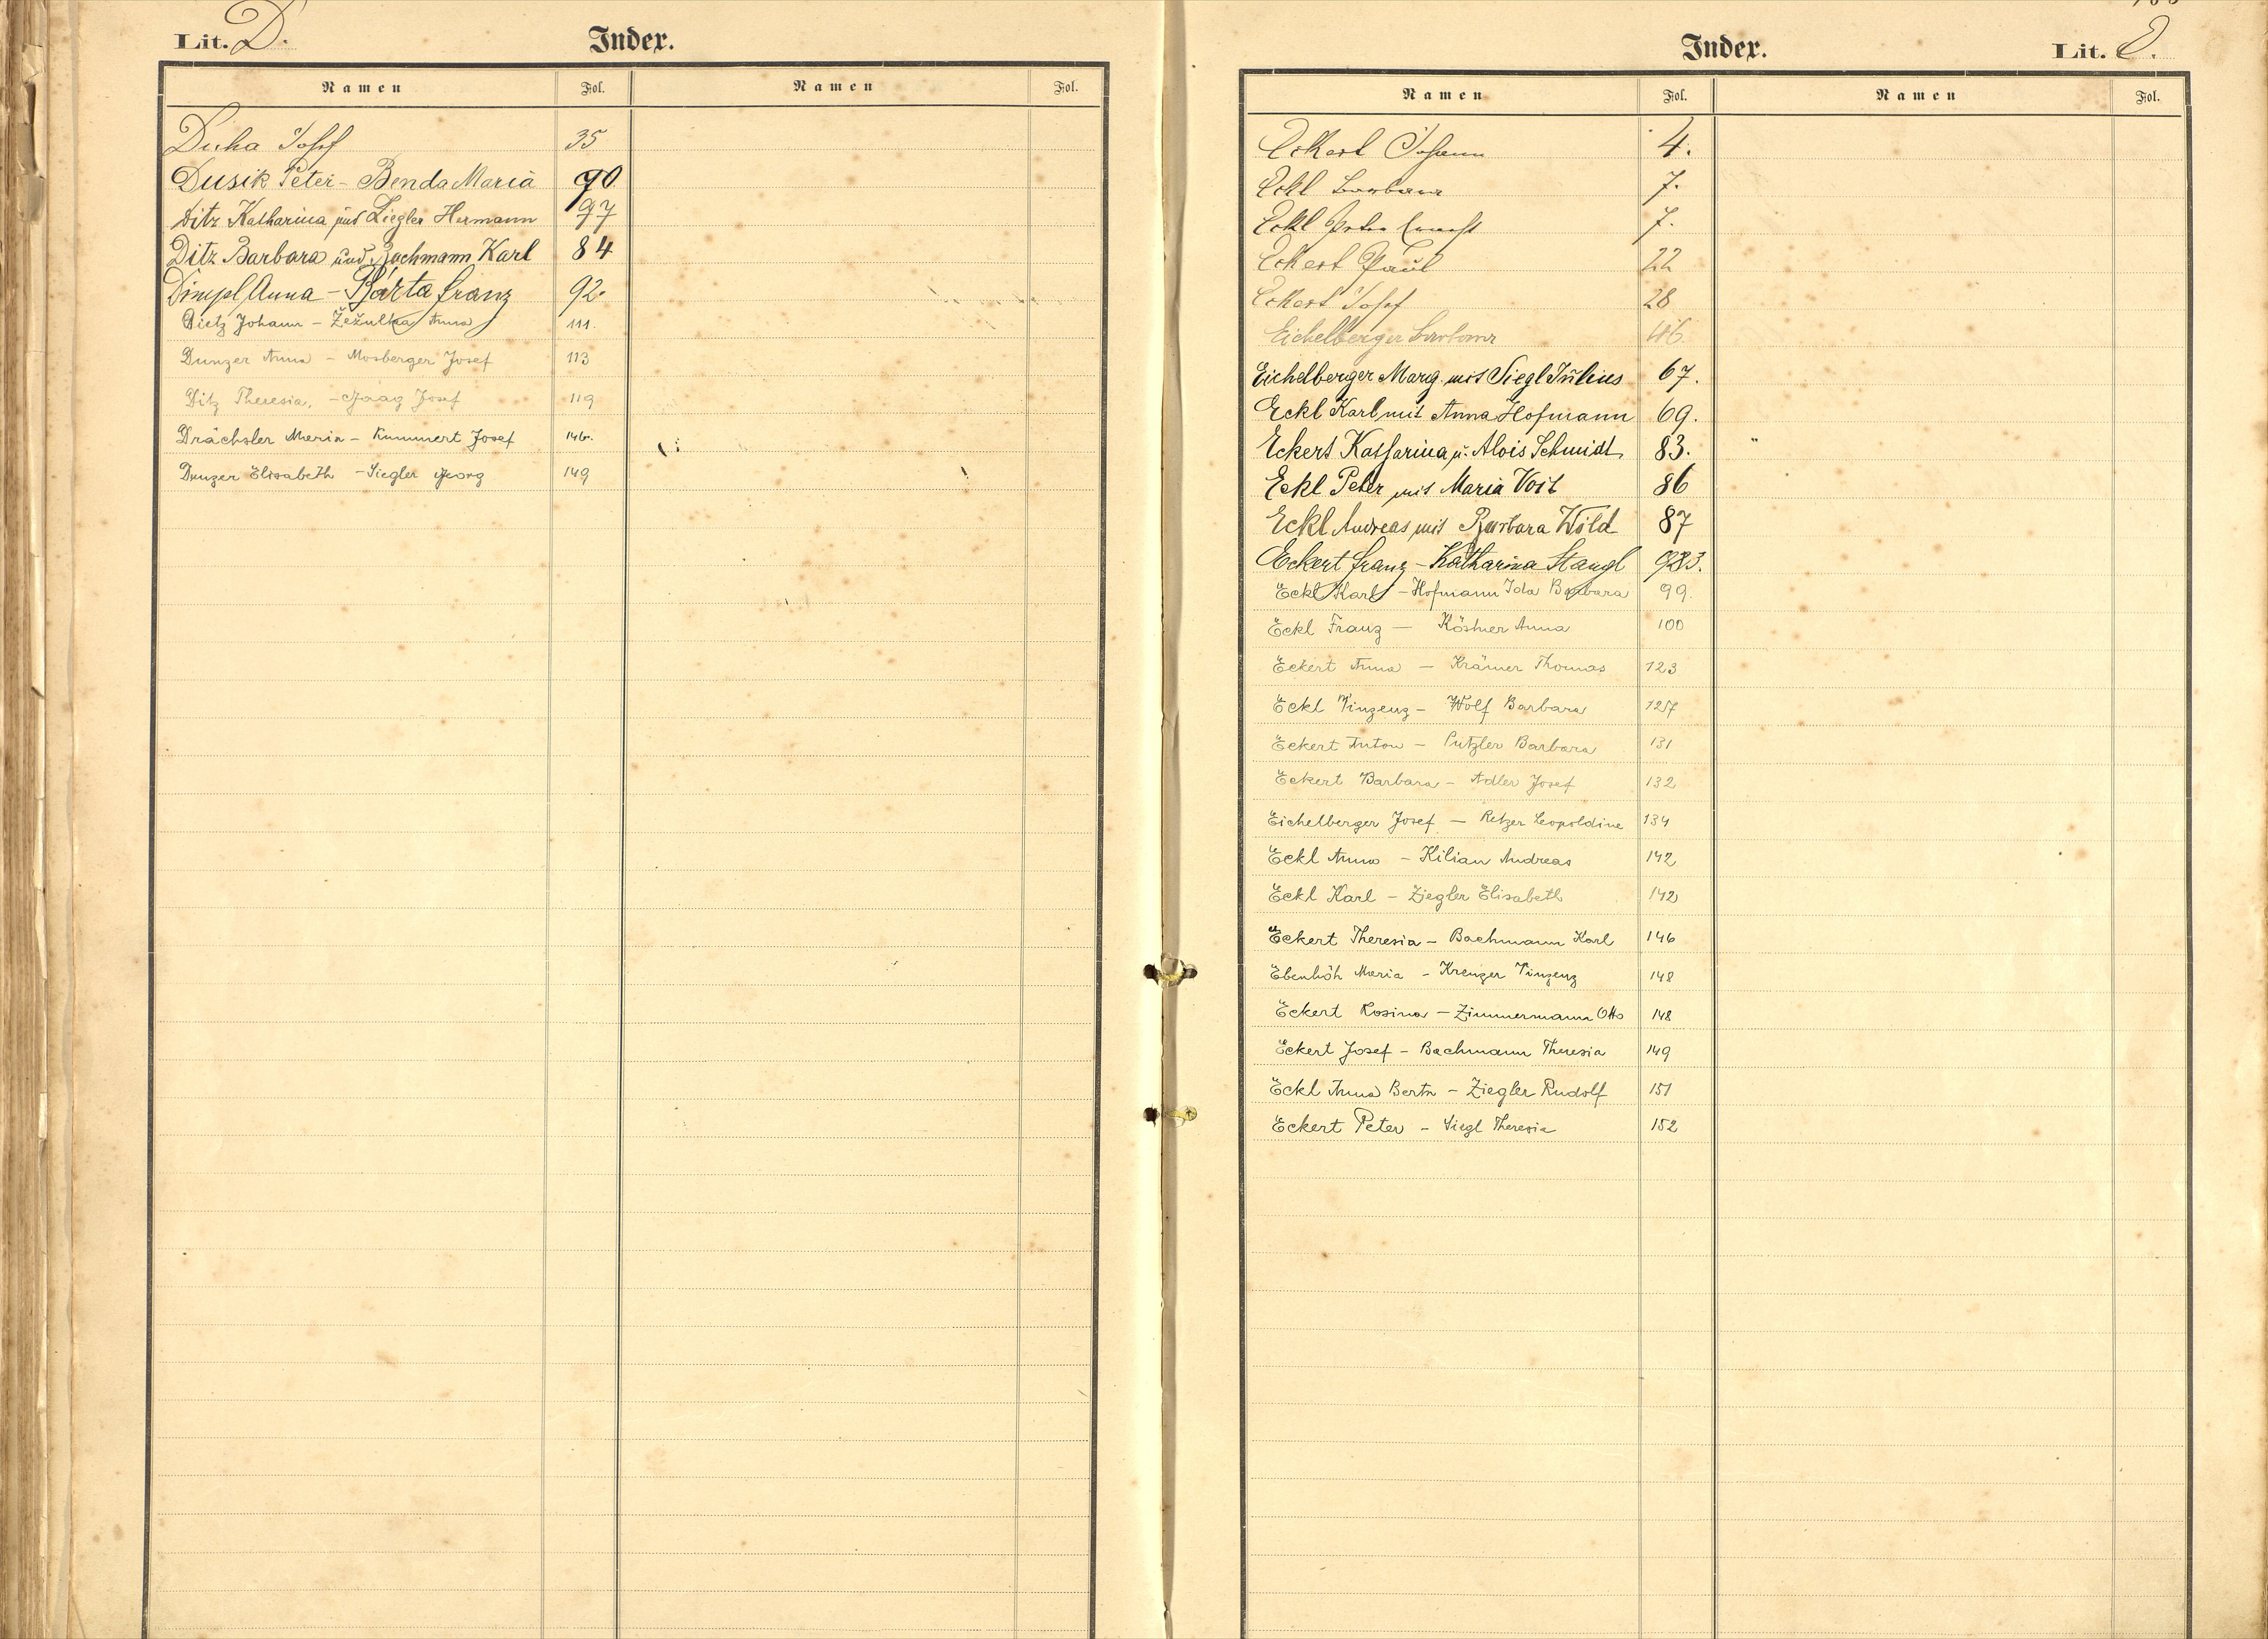 Lit. D. Index.
Namen Fol. Namen Fol.
Duha Josef 35
Dusik Peter - Benda Maria 90.
Ditz Katharina und Ziegler Hermann 97
Ditz Barbara und Bachmann Karl 84
Dimpl Anna - Bárta Franz 92.
Dietz Johann - Žežulka Anna 111.
Dunzer Anna - Mosberger Josef 113
Ditz Theresia, - Josef 119
Drächsler Maria - Kummert Josef 146.
Dunzer Elisabeth - Siegler Georg 149
Index. Lit. E.
Namen Fol. Namen Fol.
Eckert Johann 4.
Eckl Barbara 7.
Eckl Peter 7.
Eckert Paul 22
Eckert Josef 28
Eichelberger Barbara 46
Eichelberger Marg. mit Siegl Julius 67.
Eckl Karl mit Anna Hofmann 69.
Eckert Katharina u. Alois Schmidt 83.
Eckl Peter mit Maria Voit 86
Eckl Andreas mit Barbara Wild 87
Eckert Franz - Katharina Stangl
Eckl Karl - Hofmann Ida Barbara 99.
Eckl Franz - Köstner Anna 100
Eckert Anna - Krämer Thomas 123
Eckl Vinzenz - Wolf Barbara
Eckert Anton - Putzler Barbara 131
Eckert Barbara - Adler Josef 132
Eichelberger Josef - Retzer Leopoldine 134
Eckl Anna - Kilian Andreas 142
Eckl Karl - Ziegler Elisabeth 142
Eckert Theresia - Bachmann Karl 146
Ebenhöh Maria - Kreuzer Vinzenz 148
Eckert Rosina - Zimmermann Otto 148
Eckert Josef - Bachmann Theresia 149
Eckl Anna Berta - Ziegler Rudolf 151
Eckert Peter - Siegl Theresia 152